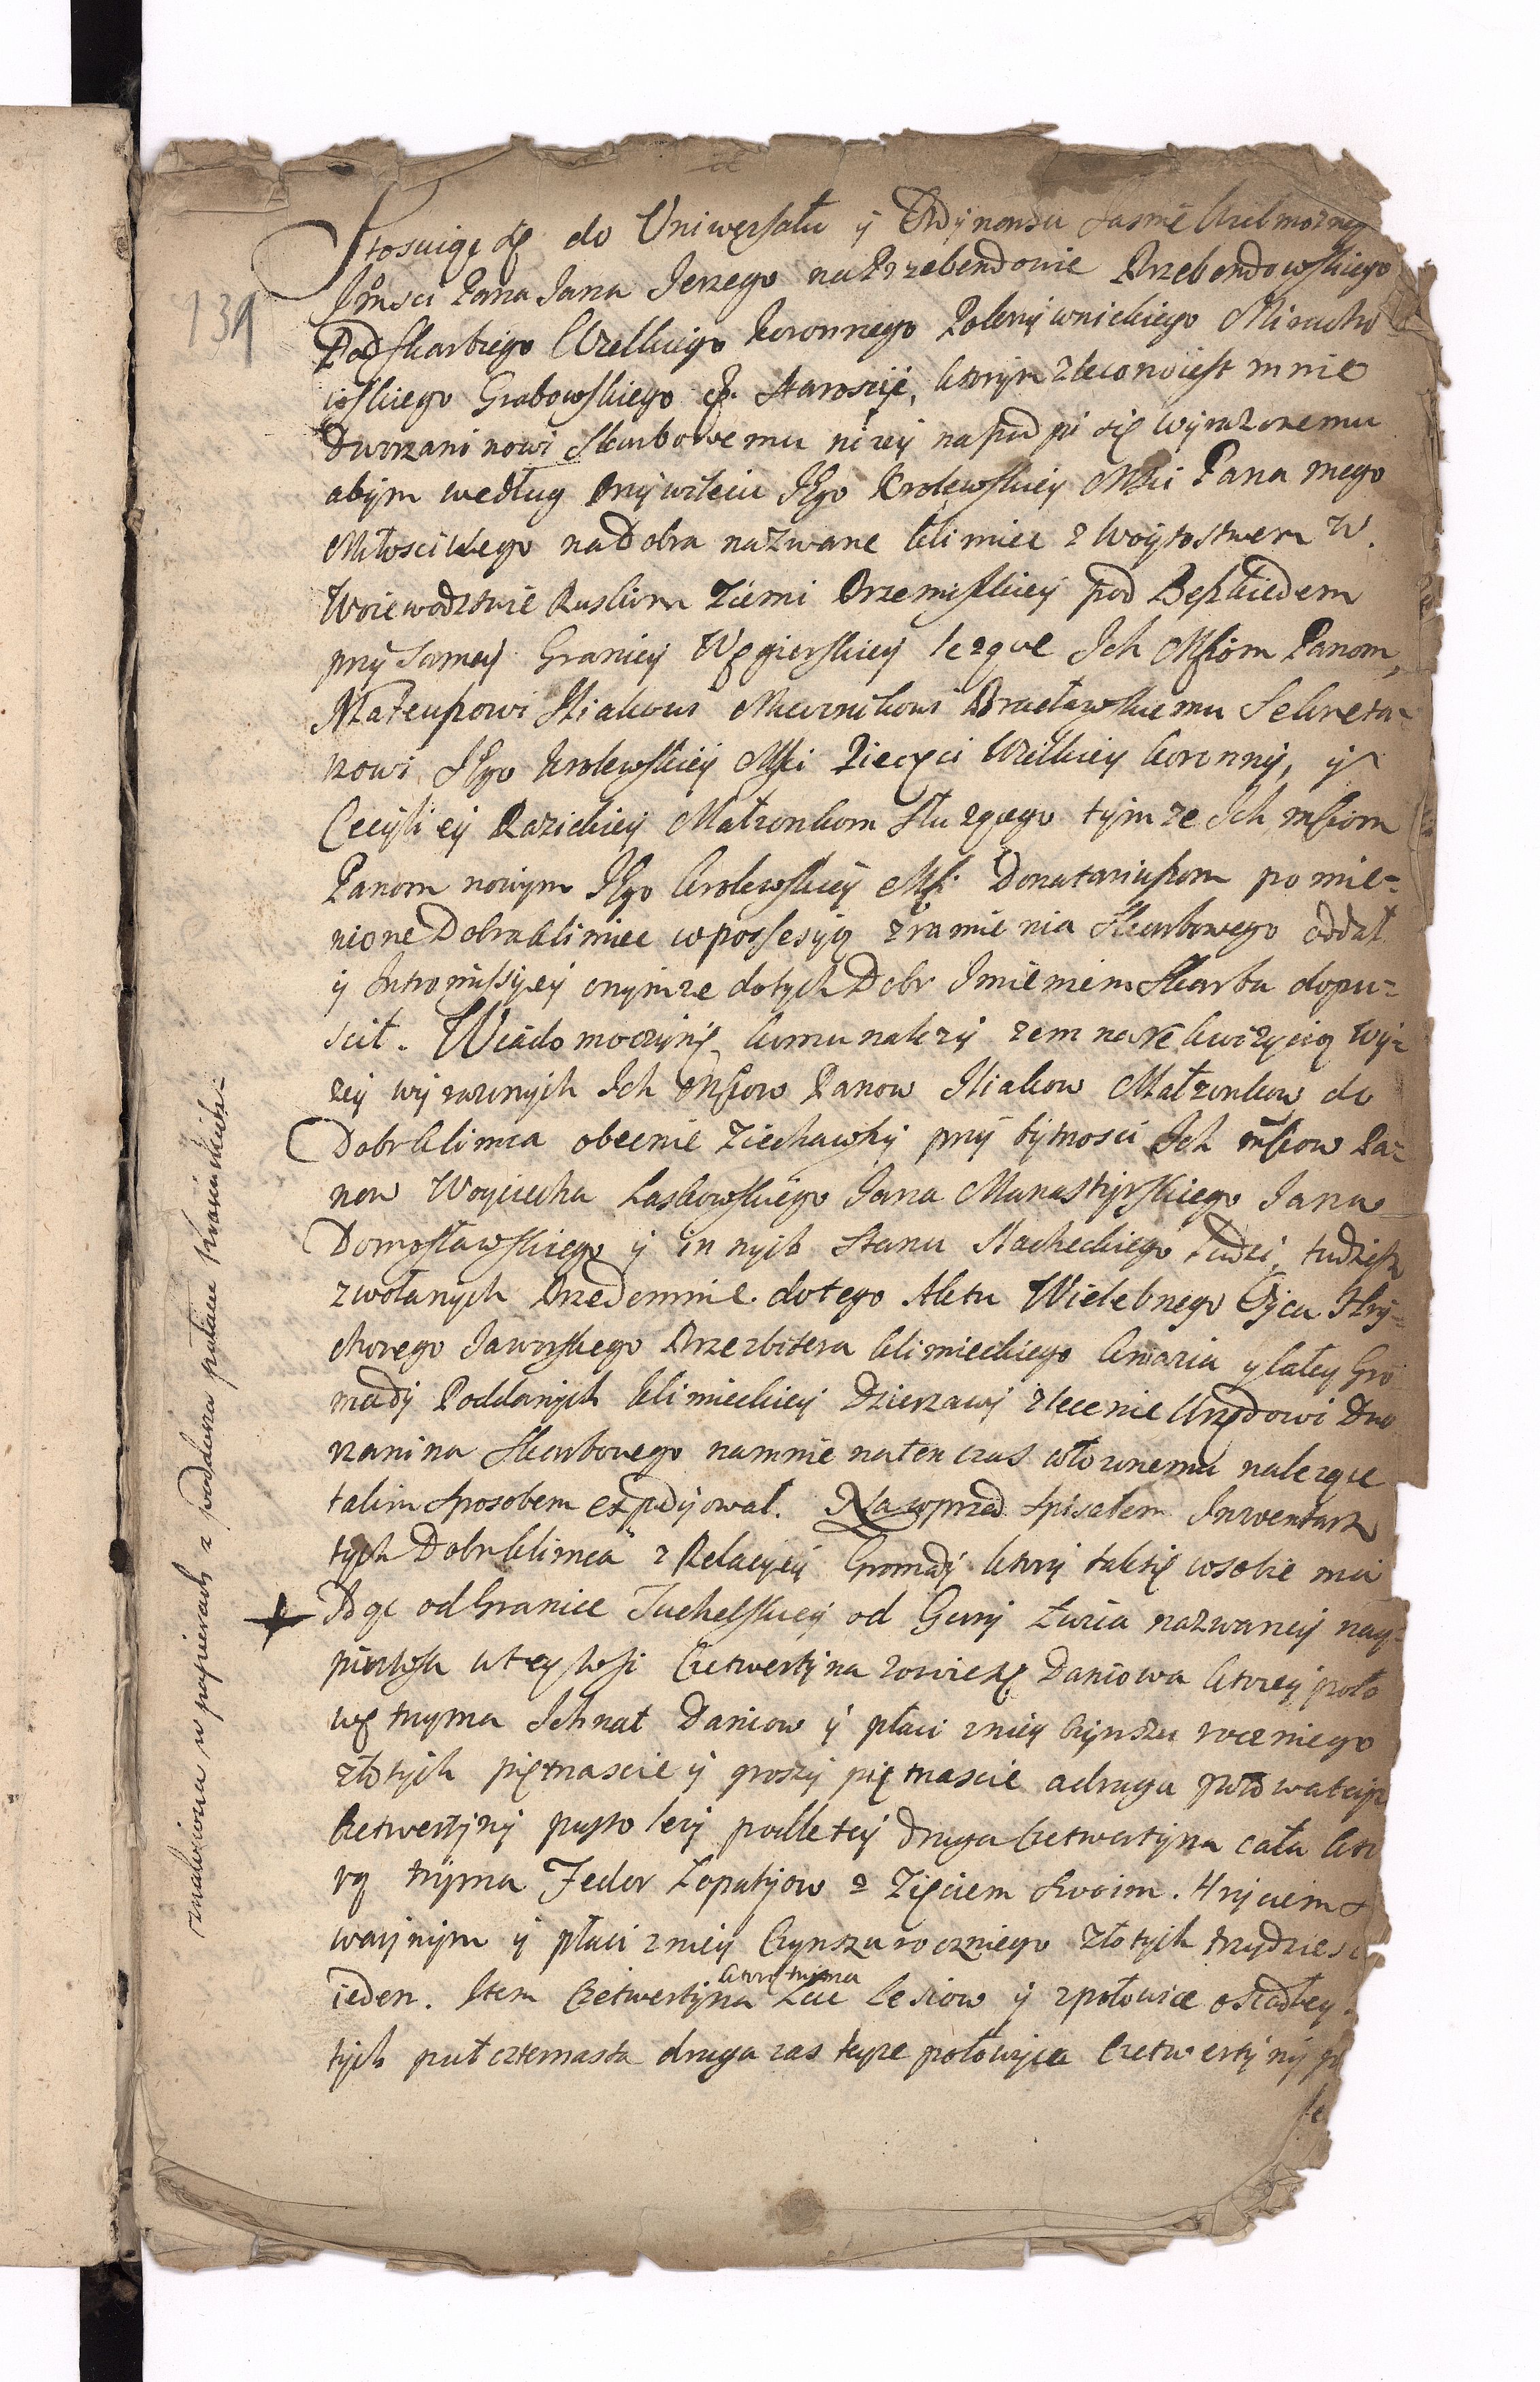 Stosuiąc się do Uniwersału y Ordynansu Jasnie Wielmożneg
Jmsci Pana Jana Jerzego na Przebendowie Przebendowskiego
131
Podskarbiego Wielkiego Koronnego Miracho
wskiego Grabowskiego &. Starosty, ktorym zlecono iest mnie
Dworzaninowi Skarbowemu nizey na podpisie wyrazonemu
abym według Przywileiu JKo Krolewskiey Mści Pana mego
Miłosciwego na Dobra nazwane Klimiec z Woytostwem W.
Woiewodztwie Ruskim Ziemi Przemyskiey pod Beskiedem
przy samey Granicy Węgierskiey lezące Ich Mściom Panom,
Mateuszowi Iliakowi Miecznikowi Bracławskiemu Sekreta-
rzowi JKo Krolewskiey Mści Pieczęci Wielkiey Koronny, y
Cecyliey Razickiey Małzonkom słuzącego tymze Ich mściom
Panom nowym JKo Krolewskiey Mści Donatariuszom pomie-
nione Dobra Klimiec w possesyią z ramienia Skarbowego oddał
y Intromissyey onymze do tych Dobr Imieniem Skarbu dopu-
scił. Wiadomo czynię, komu nalezy zem na rekwizycią wy-
zey wyrazonych Ich Mściow Panow Iliakow Małzonkow do
Dobr Klimca obecnie Ziechawszy przy bytnosci Ich mściow Pa-
now Woyciecha Laskowskiego Jana Manastyrskiego Jana
Domosławskiego y innych Stanu Slacheckiego ludzi, tudziesz
zwołanych Przedemnie do tego Aktu Wielebnego Oyca Hry-
horego Jaworskiego Prezbitera Klimieckiego Kniazia y całey Gro
mady Poddanych Klimieckiey Dzierzawy zlecenie Urzędowi Dwo
rzanina Skarbowego na mnie na ten czas włozonemu nalezące
takim sposobem expedyował. Naywprzod spisałem Inwentarz
tych Dobr Klimca z Relacyey Gromady ktory tak się w sobie ma
Idąc od Granice Tuchelskiey od Gury Zwria nazwaney nay-
pierwsza w tey wsi Czetwertyna zowie się Daniowa ktorey poło
wę trzyma Ichnat Daniow y płaci z niey Czynszu rocznego
złotych piętnascie y groszy piętnascie a druga połowa teyze
Czetwertyny pusto lezy podle tey druga Czetwertyna cała kto
rą trzyma Fedor Lopatyow z Zięciem swoim. Hryciem
waynym y płaci z niey Czynszu rocznego złotych trzydziesci
ktorą trzyma
ieden. Item Czetwertyna Lesiow y z połowice osiadłey
tych puł czternasta druga zas teyze połowica Czetwertyny
znaleziona w papierach z poddasza pałacu Krasickich